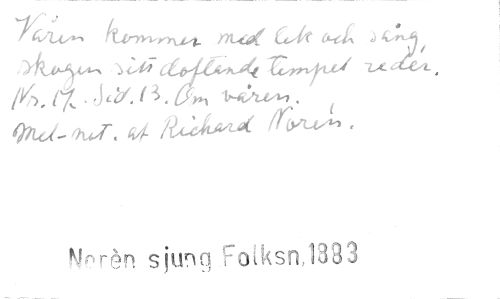 Våren kommer med lek och sång,
skogen sitt doftande tempel reder.
Nr. 17. Sid. 13. Om våren.
Mel-not. af Richard Norén.
Norèn sjung Folksn, 1883